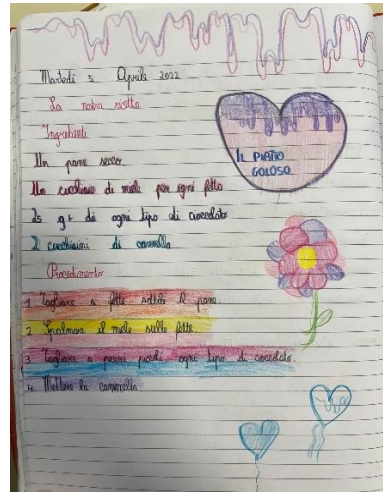 Martedì 5 Aprile 2022
La nostra ricetta
Ingredienti
IL PIATTO
GOLOSO
Un pane secco
Un cucchiaio di miele per ogni fetta
25 gr di ogni tipo di cioccolato
2 cucchiaini di cannella
Procedimento
1 Tagliare a fette sottili il pane
2 Spalmare il miele sulle fette
3 Tagliare a pezzi piccoli ogni tipo di cioccolato
4 Mettere la cannella